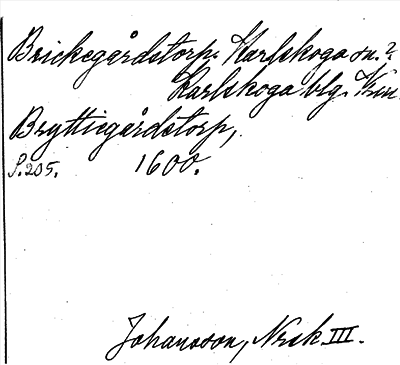 Brickegårdstorp. Karlskoga sn.?
Karlskoga blg.
Bryttiegårdstorp,
S. 205. 1600.
Johansson, Nrsk III.